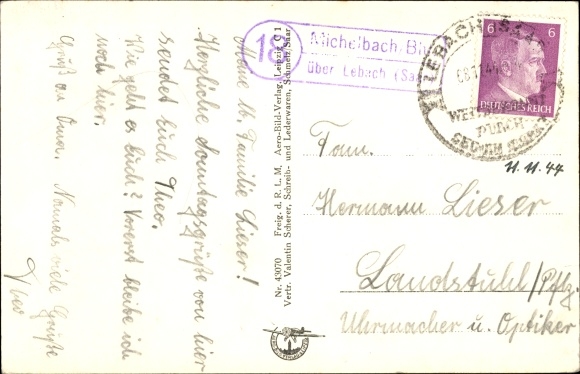 Meine lb. Familie Lieser!
Herzliche Sonntagsgrüße von hier
sendet Euch Theo.
Wie geht es Euch? Vorerst bleibe ich
noch hier.
Gruß an Oma. Nomals viele Grüße
Theo
Nr. 43070 Freig. d. R. L. M. Aero-Bild-Verlag, Leipzig C 1
Vertr. Valentin Scherer, Schreib- und Lederwaren, Schmelz/Saar
18
Michelbach
über Lebach (Saar
LEBACH
6 6
DEUTSCHES REICH
11.11.44
Fam.
Hermann Lieser
Landstuhl/Pflz.
Uhrmacher u. Optiker